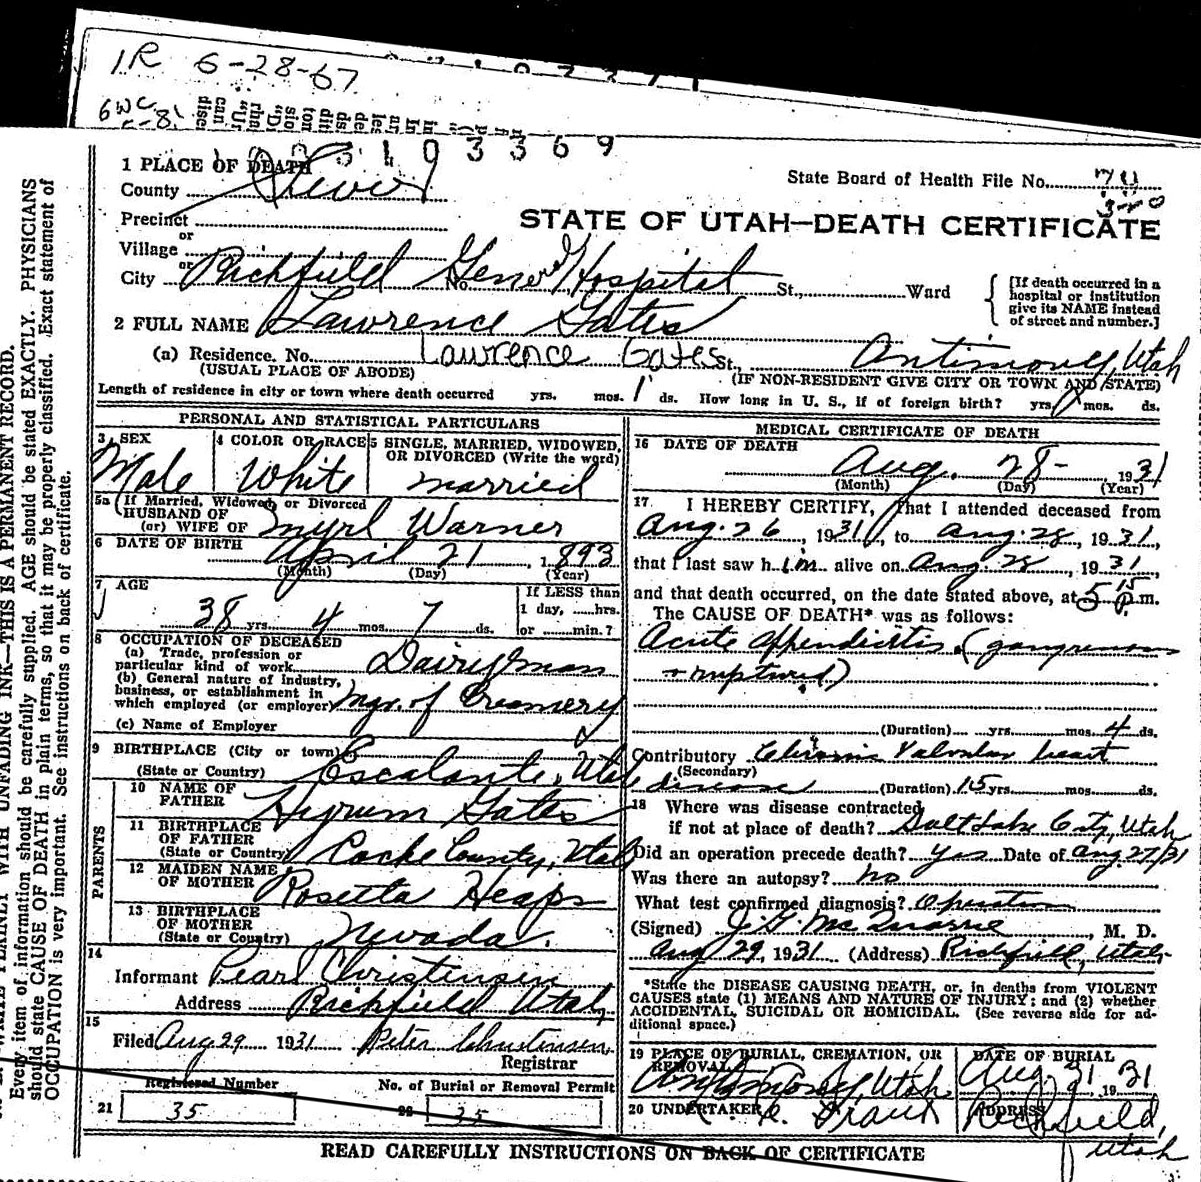 1R 6-28-67
3 1 0 3 3 6 9
1 PLACE OF DEATH
County Sevier
State Board of Health File No. 70
Precinct
STATE OF UTAH—DEATH CERTIFICATE
or
Village
or
City Richfield No. General Hospital St., Ward
[If death occurred in a
hospital or institution
give its NAME instead
of street and number.]
2 FULL NAME Lawrence Gates
(a) Residence. No. Lawrence Gates St. Antimony, Utah
(USUAL PLACE OF ABODE) (IF NON-RESIDENT GIVE CITY OR TOWN AND STATE)
Length of residence in city or town where death occurred yrs. mos. 1 ds. How long in U. S., if of foreign birth? yrs. mos. ds.
PERSONAL AND STATISTICAL PARTICULARS
3 SEX 4 COLOR OR RACE 5 SINGLE, MARRIED, WIDOWED,
OR DIVORCED (Write the word)
Male White married
5a If Married, Widowed or Divorced
HUSBAND OF
(or) WIFE OF Myrl Warner
6 DATE OF BIRTH April 21, 1893
(Month) (Day) (Year)
7 AGE If LESS than
1 day, ......hrs.
38 yrs. 4 mos. 7 ds. or ......min.?
8 OCCUPATION OF DECEASED
(a) Trade, profession or
particular kind of work Dairyman
(b) General nature of industry,
business, or establishment in
which employed (or employer) Mgr. of Creamery
(c) Name of Employer
9 BIRTHPLACE (City or town)
(State or Country) Escalante, Utah
PARENTS
10 NAME OF
FATHER Hyrum Gates
11 BIRTHPLACE
OF FATHER
(State or Country) Cache County, Utah
12 MAIDEN NAME
OF MOTHER Rosetta Heaps
13 BIRTHPLACE
OF MOTHER
(State or Country) Nevada.
14
Informant Pearl Christensen
Address Richfield Utah,
15
Filed Aug 29 1931 Peter Christensen
Registrar
Registered Number No. of Burial or Removal Permit
21 35 22 35
MEDICAL CERTIFICATE OF DEATH
16 DATE OF DEATH
Aug. 28- 1931
(Month) (Day) (Year)
17 I HEREBY CERTIFY, That I attended deceased from
Aug. 26, 1931, to Aug. 28, 1931,
that I last saw him alive on Aug. 28, 1931,
and that death occurred, on the date stated above, at 5 15 p.m.
The CAUSE OF DEATH* was as follows:
Acute Appendicitis. (gangrenous
+ ruptured)
(Duration) yrs. mos. 4 ds.
Contributory Chronic Valvular heart
(Secondary)
disease (Duration) 15 yrs. mos. ds.
18 Where was disease contracted
if not at place of death? Salt Lake City, Utah
Did an operation precede death? Yes Date of Aug 27/31
Was there an autopsy? No
What test confirmed diagnosis? Operation
(Signed) J. G. McQuarrie, M. D.
Aug 29, 1931 (Address) Richfield, Utah
*State the DISEASE CAUSING DEATH, or, in deaths from VIOLENT
CAUSES state (1) MEANS AND NATURE OF INJURY; and (2) whether
ACCIDENTAL, SUICIDAL OR HOMICIDAL. (See reverse side for ad-
ditional space.)
19 PLACE OF BURIAL, CREMATION, OR
REMOVAL
Antimony, Utah
DATE OF BURIAL
Aug. 31, 1931
20 UNDERTAKER
ADDRESS
Richfield,
Utah
READ CAREFULLY INSTRUCTIONS ON BACK OF CERTIFICATE
WRITE PLAINLY WITH UNFADING INK—THIS IS A PERMANENT RECORD.
Every item of information should be carefully supplied. AGE should be stated EXACTLY. PHYSICIANS
should state CAUSE OF DEATH in plain terms, so that it may be properly classified. Exact statement of
OCCUPATION is very important. See instructions on back of certificate.